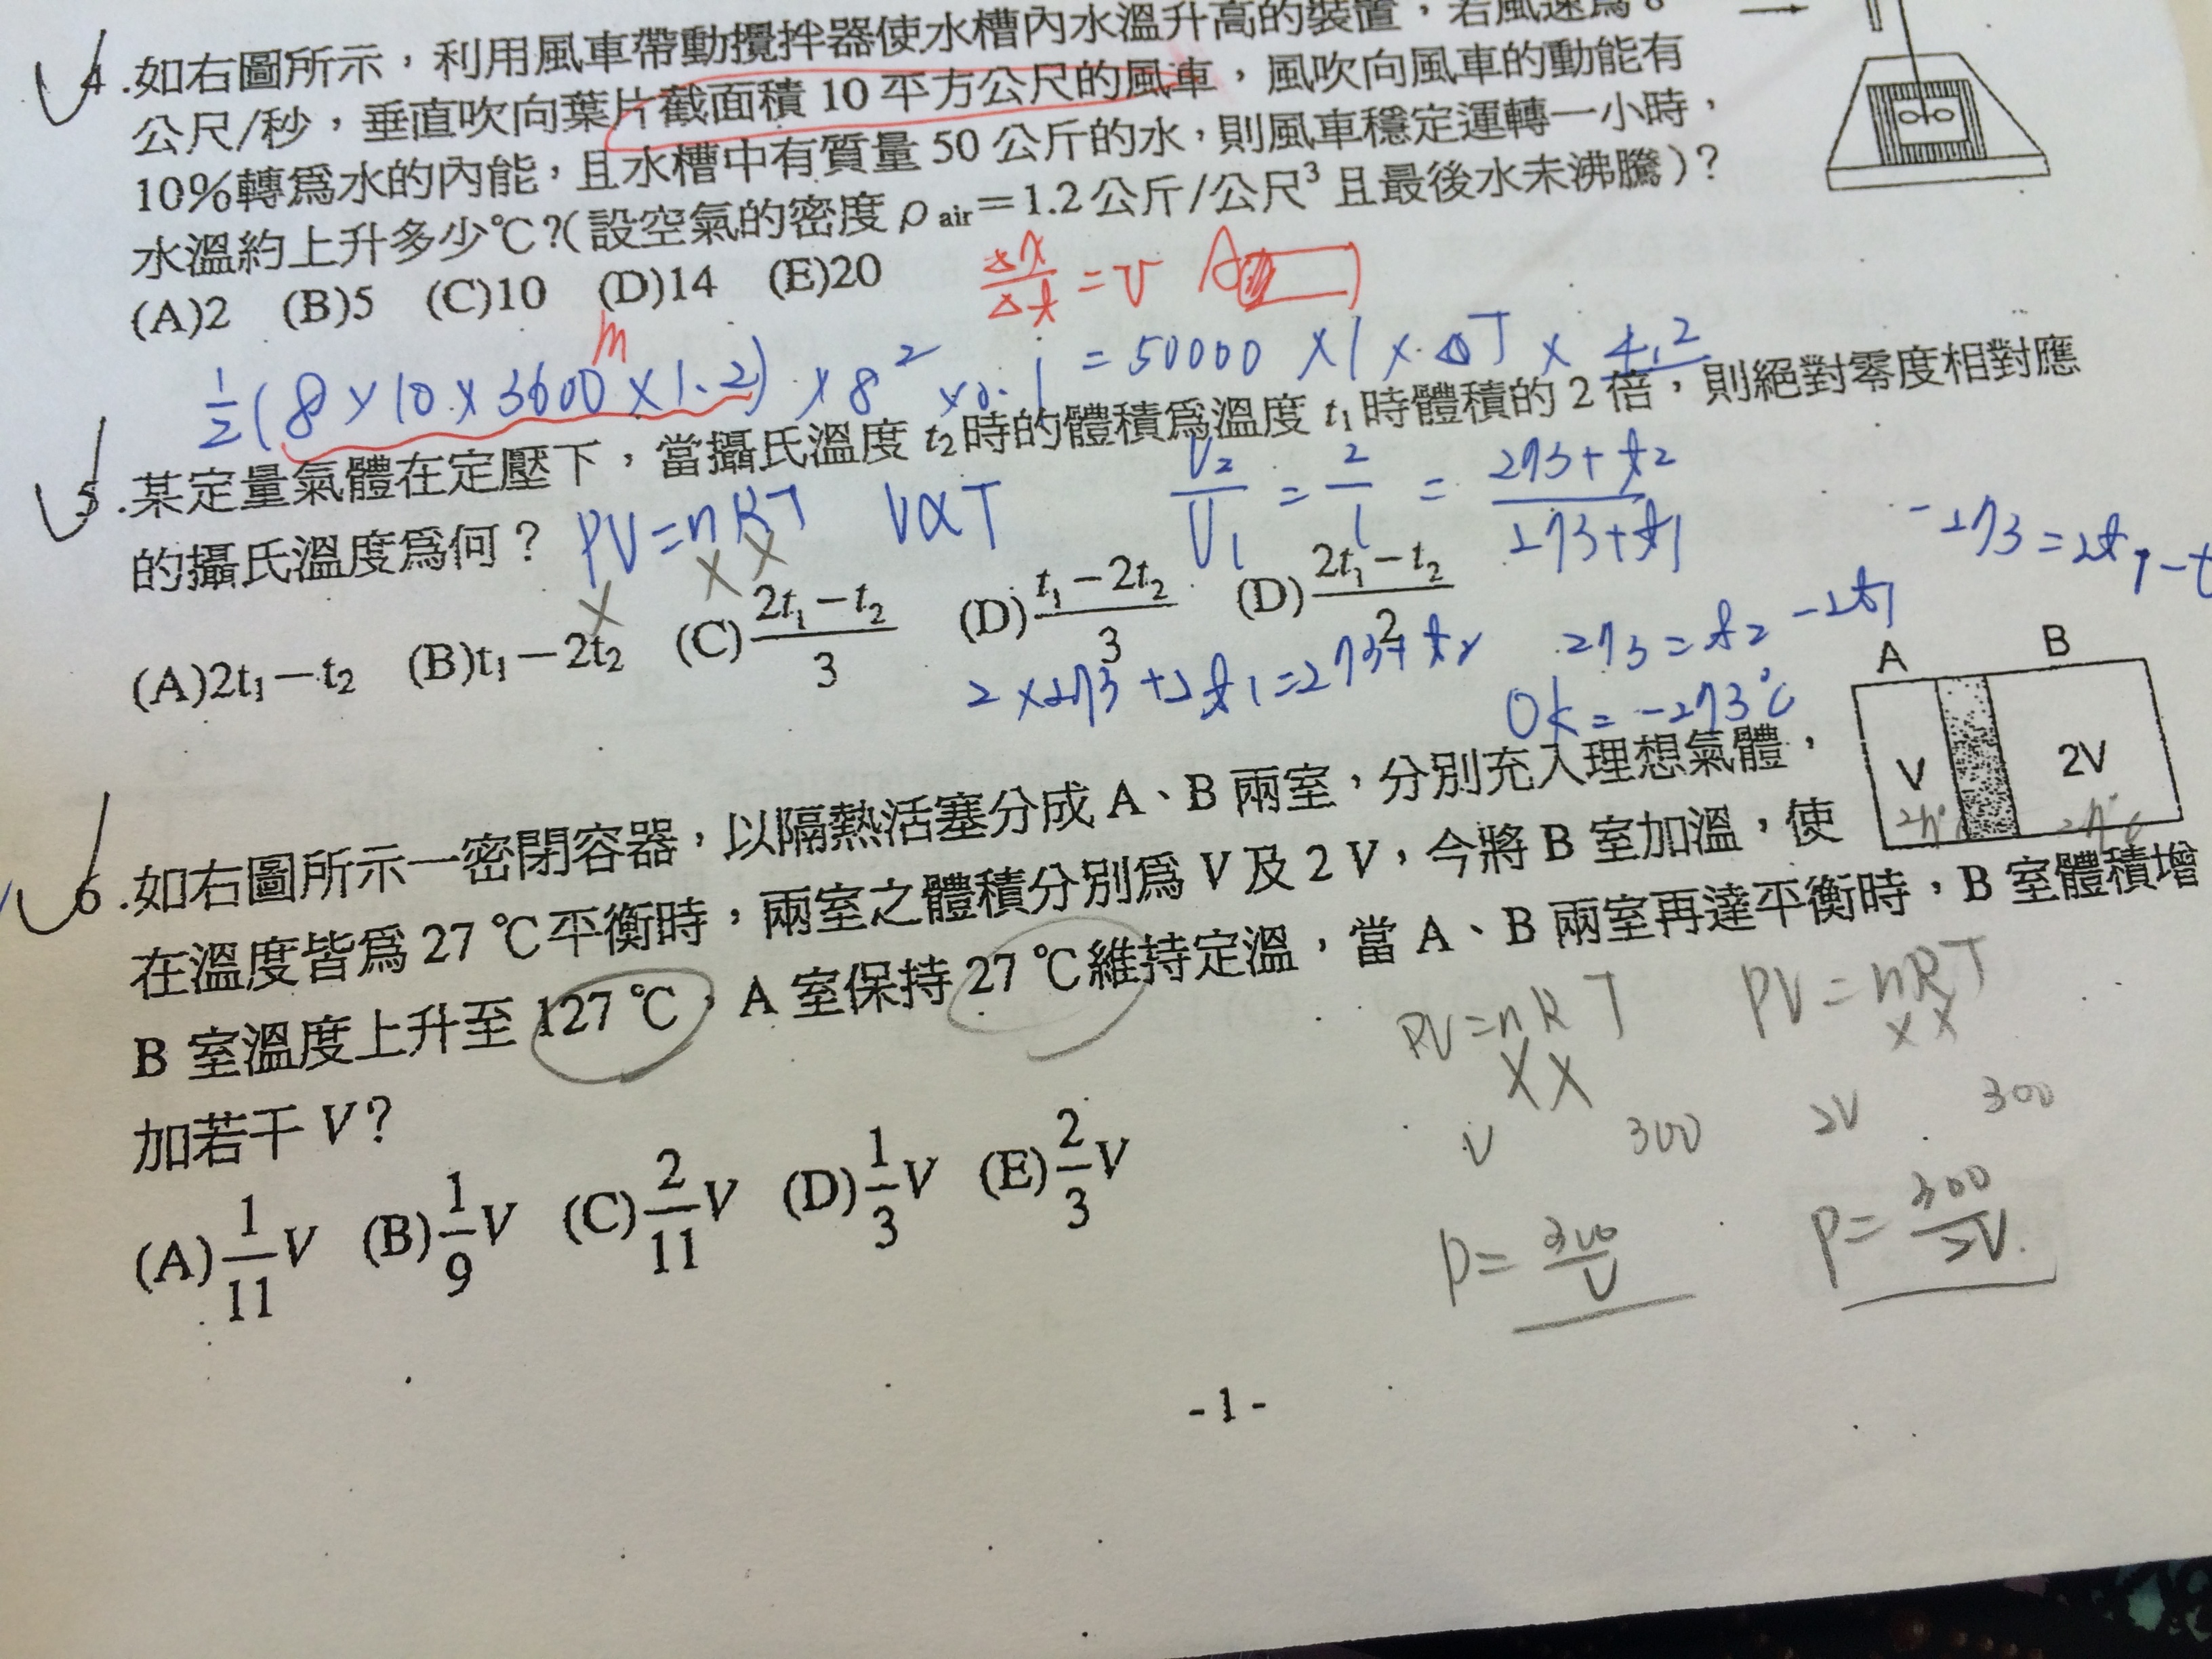 4.如右圖所示，利用風車帶動攪拌器使水槽內水溫升高的裝置，若風速爲8
公尺/秒，垂直吹向葉片截面積10平方公尺的風車，風吹向風車的動能有
10%轉爲水的內能，且水槽中有質量50公斤的水，則風車穩定運轉一小時，
水溫約上升多少℃?(設空氣的密度ρair＝1.2公斤/公尺³且最後水未沸騰)?
(A)2 (B)5 (C)10 (D)14 (E)20
Δx/Δt = v A
m
1/2(8×10×3600×1.2)×8²×0.1=50000×1×ΔT×4.2
5.某定量氣體在定壓下，當攝氏溫度t₂時的體積爲溫度t₁時體積的2倍，則絕對零度相對應
的攝氏溫度爲何？
PV=nRT V∝T V₂/V₁=2/1=(273+t₂)/(273+t₁)
-273=2t₁-t
(A)2t₁－t₂ (B)t₁－2t₂ (C)(2t₁－t₂)/3 (D)(t₁－2t₂)/3 (D)(2t₁－t₂)/2
2×273+2t₁=273+t₂ 273=t₂-2t₁
0k=-273℃
A B
V 2V
27℃ 27℃
6.如右圖所示一密閉容器，以隔熱活塞分成A、B兩室，分別充入理想氣體，
在溫度皆爲27℃平衡時，兩室之體積分別爲V及2V，今將B室加溫，使
B室溫度上升至127℃，A室保持27℃維持定溫，當A、B兩室再達平衡時，B室體積增
加若干V?
(A)1/11V (B)1/9V (C)2/11V (D)1/3V (E)2/3V
PV=nRT PV=nRT
××  ××
V 300 2V 300
P=300/V P=300/2V
-1-